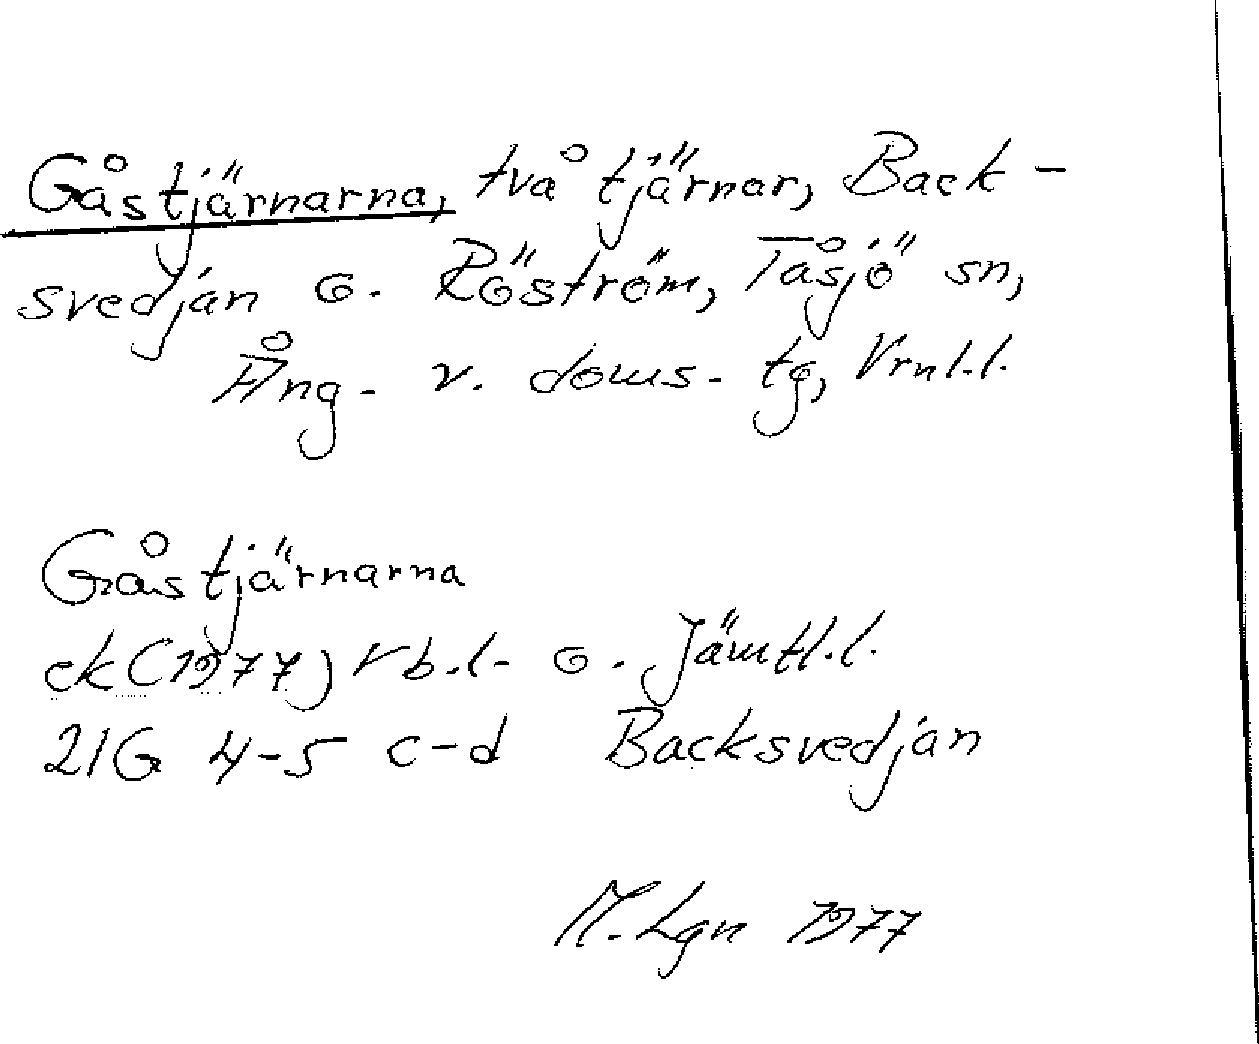 Gåstjärnarna, två tjärnar, Back-
svedjan o. Röström, Tåsjö sn,
Ång. v. doms. tg, Vrnl.l.
Gåstjärnarna
ek (1977) Vb.l. o. Jämtl.l.
21G 4-5 c-d Backsvedjan
M. Lgn 1977